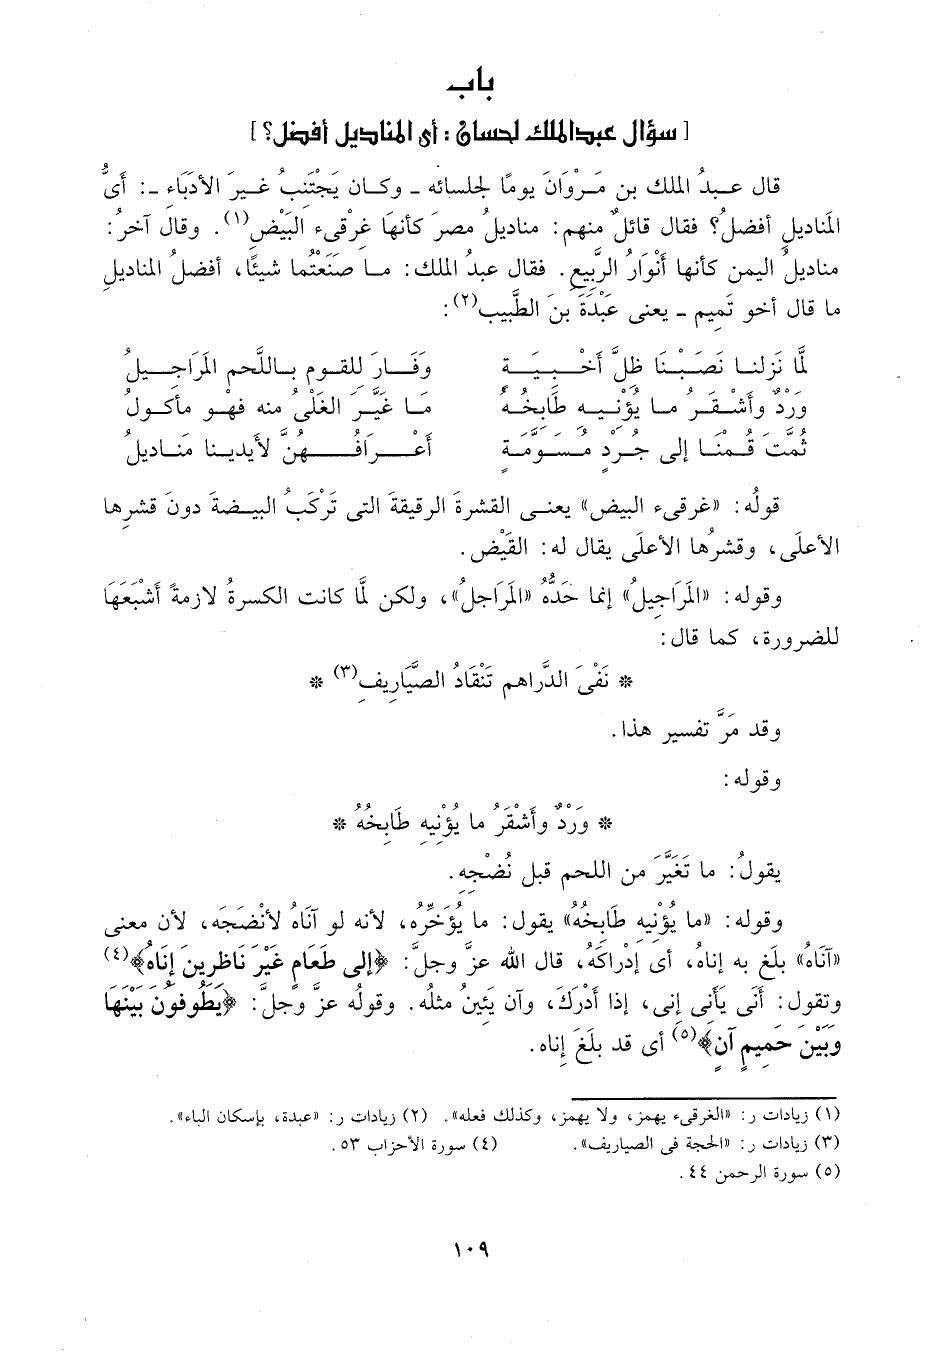 باب
[ سؤال عبدالملك لحسان : أى المناديل أفضل؟ ]
قال عبدُ الملك بن مَرْوَانَ يومًا لجلسائه ـ وكان يَجْتَنِبُ غيرَ الأدَبَاءِ ـ: أَىُّ
المَناديلِ أفضلُ؟ فقال قائلٌ منهم: مناديلُ مصرَ كأنهَا غرْقىء البَيْضِ(١). وقال آخرُ:
مناديلُ اليمن كأنها أنْوَارُ الرَّبيعِ. فقال عبدُ الملك: ما صَنَعْتُما شيئًا، أفضلُ المناديلِ
ما قال أخو تَمِيمٍ ـ يعنى عَبْدَةَ بنَ الطَّبِيب(٢):
لَمَّا نَزلنا نَصَبْنَا ظلَّ أَخْبِيَةٍ وَفَارَ للقومِ باللَّحمِ المَرَاجيلُ
وَرْدٌ وأَشْقَرُ ما يُؤْنِيهِ طَابِخُهُ مَا غَيَّرَ الغَلْىُ منه فهْو مأكولُ
ثُمَّتَ قُمْنَا إلى جُرْدٍ مُسَوَّمَةٍ أَعْرَافُهُنَّ لأيدينا مَنَاديلُ
قولُه: «غرقىء البيض» يعنى القشرةَ الرقيقةَ التى تَرْكَبُ البيضةَ دونَ قشرِها
الأعلَى، وقشرُها الأعلَى يقال له: القَيْض.
وقوله: «المَرَاجِيلُ» إنما حَدُّهُ «المَرَاجلُ»، ولكن لمَّا كانت الكسرةُ لازمةً أشْبَعَهَا
للضرورة، كما قال:
* نَفْىَ الدَّراهم تَنْقَادُ الصَّيَارِيفِ(٣) *
وقد مَرَّ تفسير هذا.
وقوله:
* وَرْدٌ وأَشْقَرُ ما يُؤْنِيهِ طَابِخُهُ *
يقولُ: ما تَغَيَّرَ من اللحم قبل نُضْجِهِ.
وقوله: «ما يُؤْنِيهِ طَابخُهُ» يقول: ما يُؤَخِّرُه، لأنه لو آنَاهُ لأنْضَجَه، لأن معنى
«آنَاهُ» بلَغ به إناهُ، أى إدْرَاكَهُ، قال الله عزَّ وجلَّ: ﴿إلى طَعَامٍ غَيْرَ نَاظرِينَ إنَاهُ﴾(٤)
وتقول: أَنَى يَأنى إنى، إذا أَدْرَكَ، وآن يَئِينُ مثلُه. وقولُه عزَّ وجلَّ: ﴿يَطُوفُونَ بَيْنَهَا
وَبَيْنَ حَمِيمٍ آنٍ﴾(٥) أى قد بلَغَ إِناه.
(١) زيادات ر: «الغرقىء يهمز، ولا يهمز، وكذلك فعله». (٢) زيادات ر: «عبدة، بإسكان الباء».
(٣) زيادات ر: «الحجة فى الصياريف». (٤) سورة الأحزاب ٥٣.
(٥) سورة الرحمن ٤٤.
١٠٩